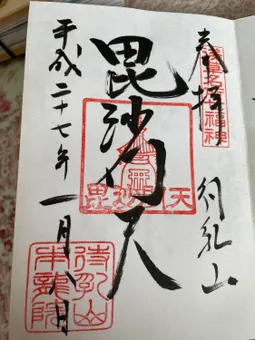 奉拝
待乳山
浅草名所七福神
毘沙門天
毘沙門天
平成二十七年一月八日
待乳山
本龍院